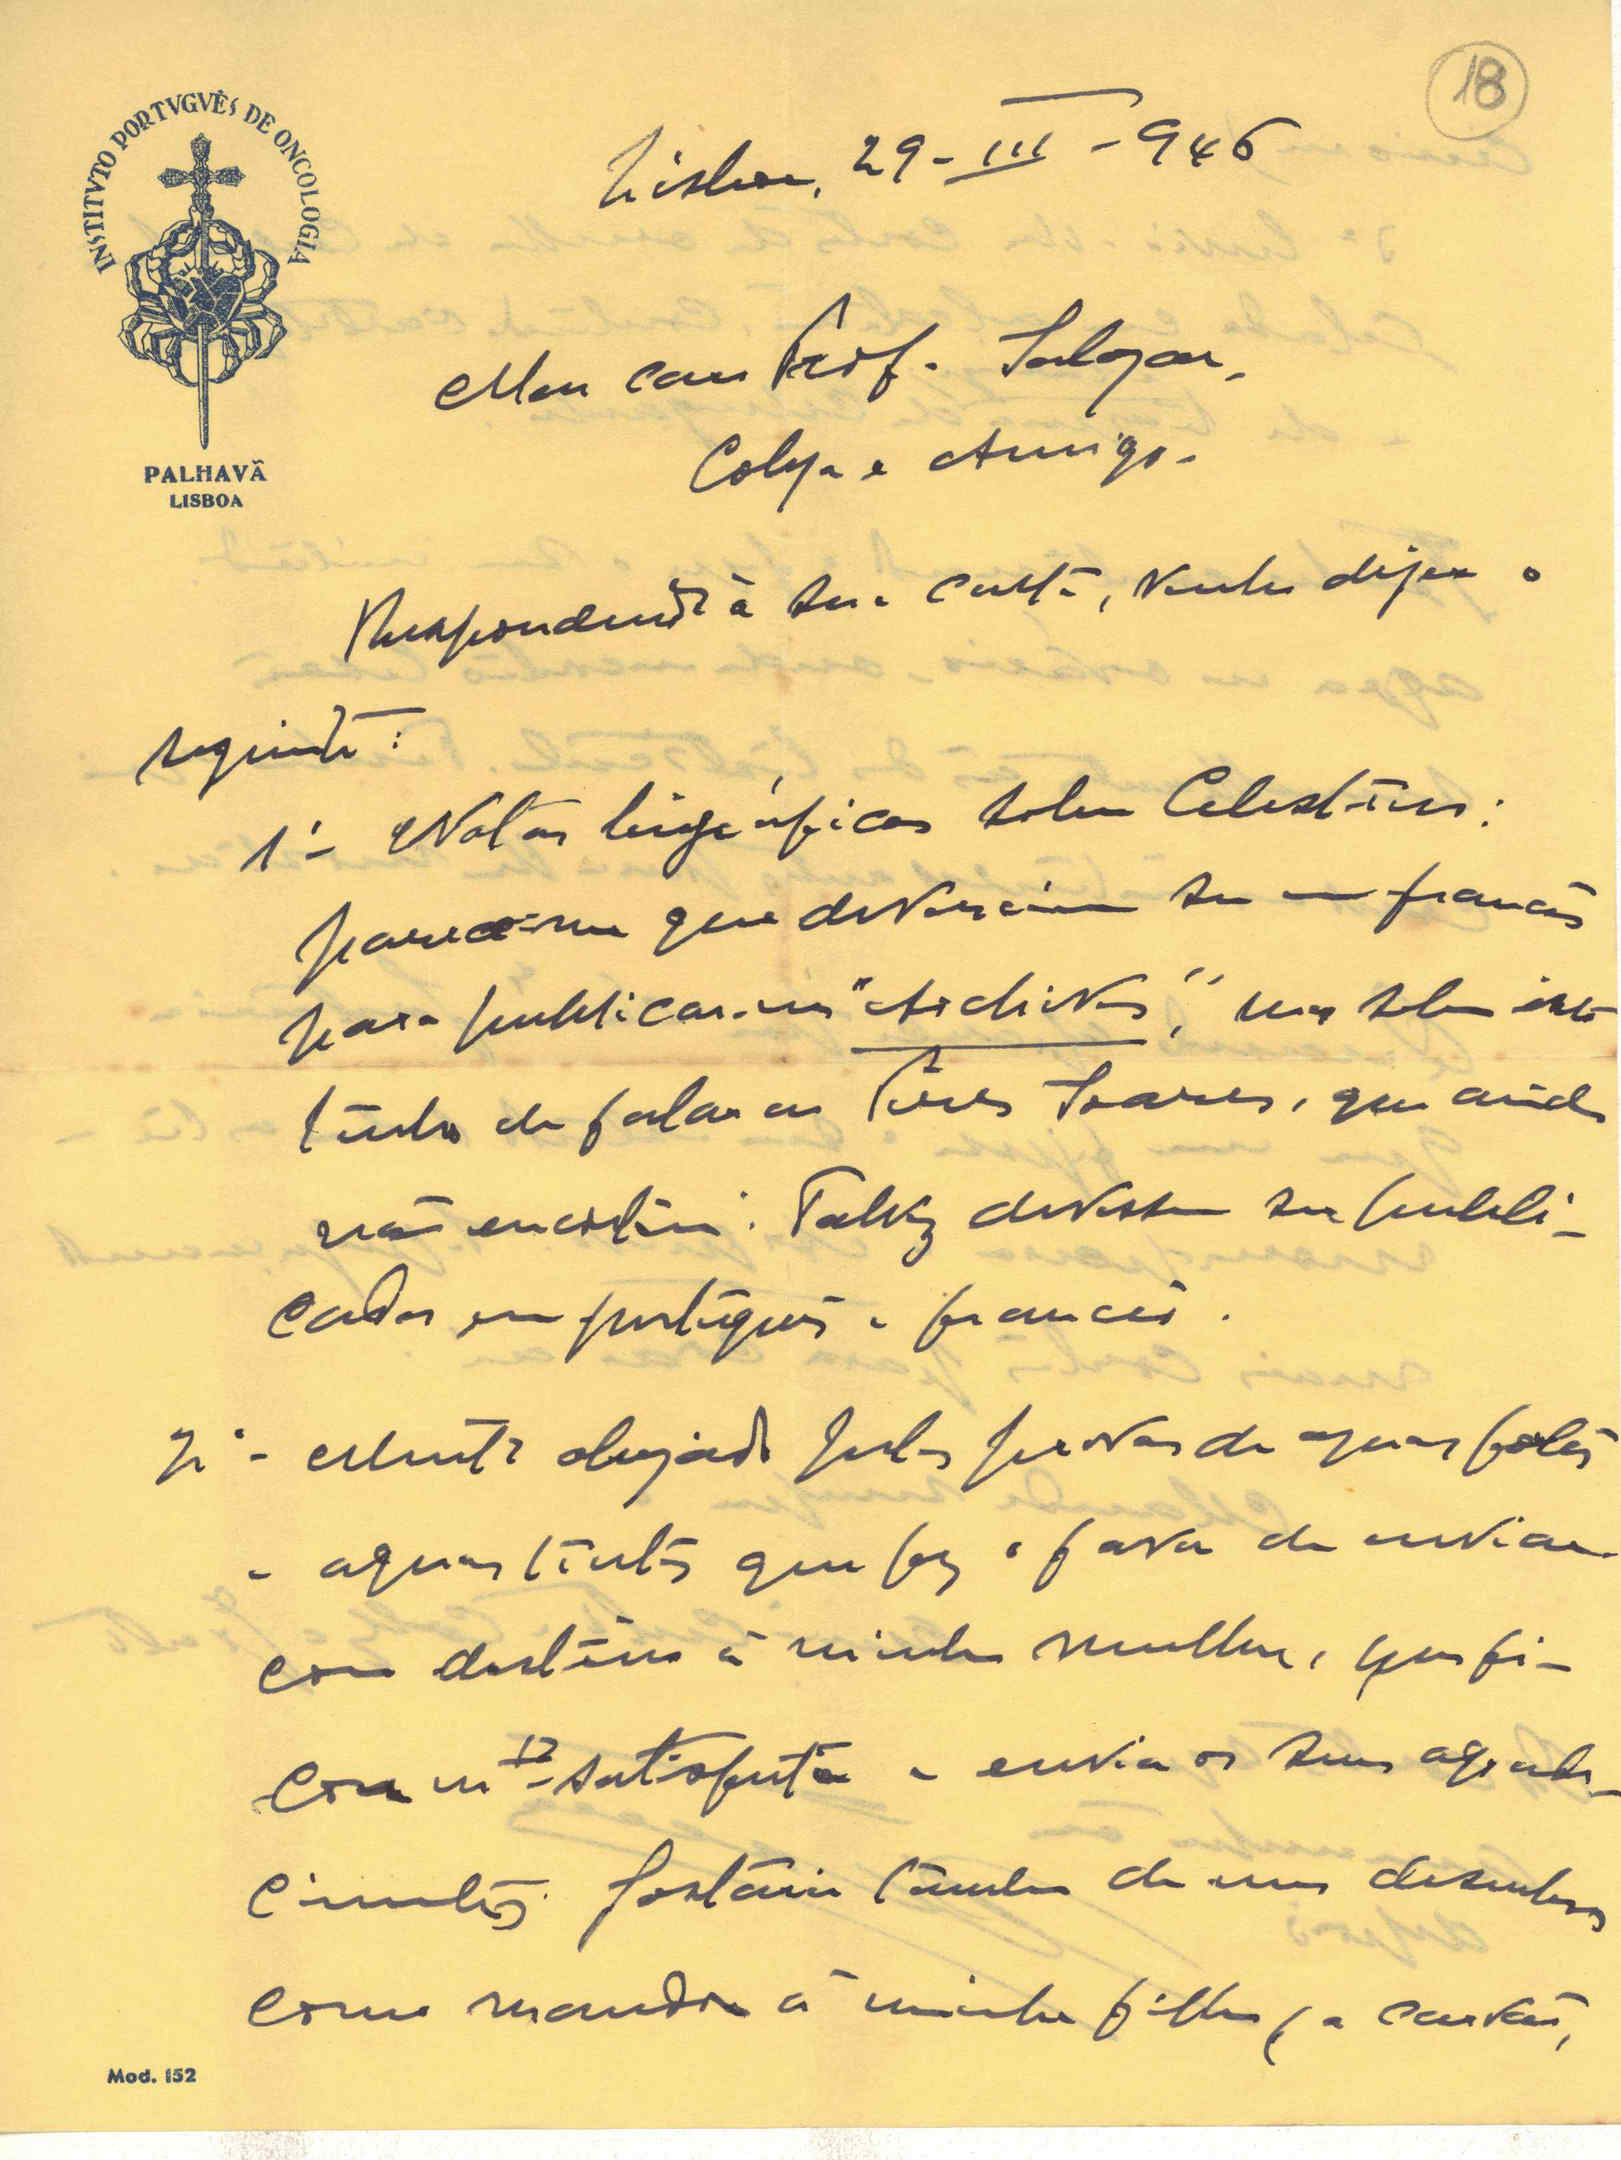 18
INSTITVTO PORTVGVÊS DE ONCOLOGIA
PALHAVÃ
LISBOA
Lisboa, 29-III-946
Meu caro Prof. Salazar,
Colega e Amigo.
Respondendo à sua carta, venho dizer o
seguinte:
1º - Notas biográficas sobre Celestino:
parece-me que deveriam ser em francês
para publicar nos "Archives", mas sobre isso
tenho de falar ao Pires Soares, que ainda
não encontrei. Talvez devessem ser publi-
cadas em português e francês.
2º - Muito obrigado pelas provas de aguas fortes
e aguas tintas que fez o favor de enviar
com destino à minha mulher, que fi-
cou mto satisfeita e envia os seus agrade-
cimentos. Gostaria também de uns desenhos
como mandou à minha filha (a carvão,
Mod. 152